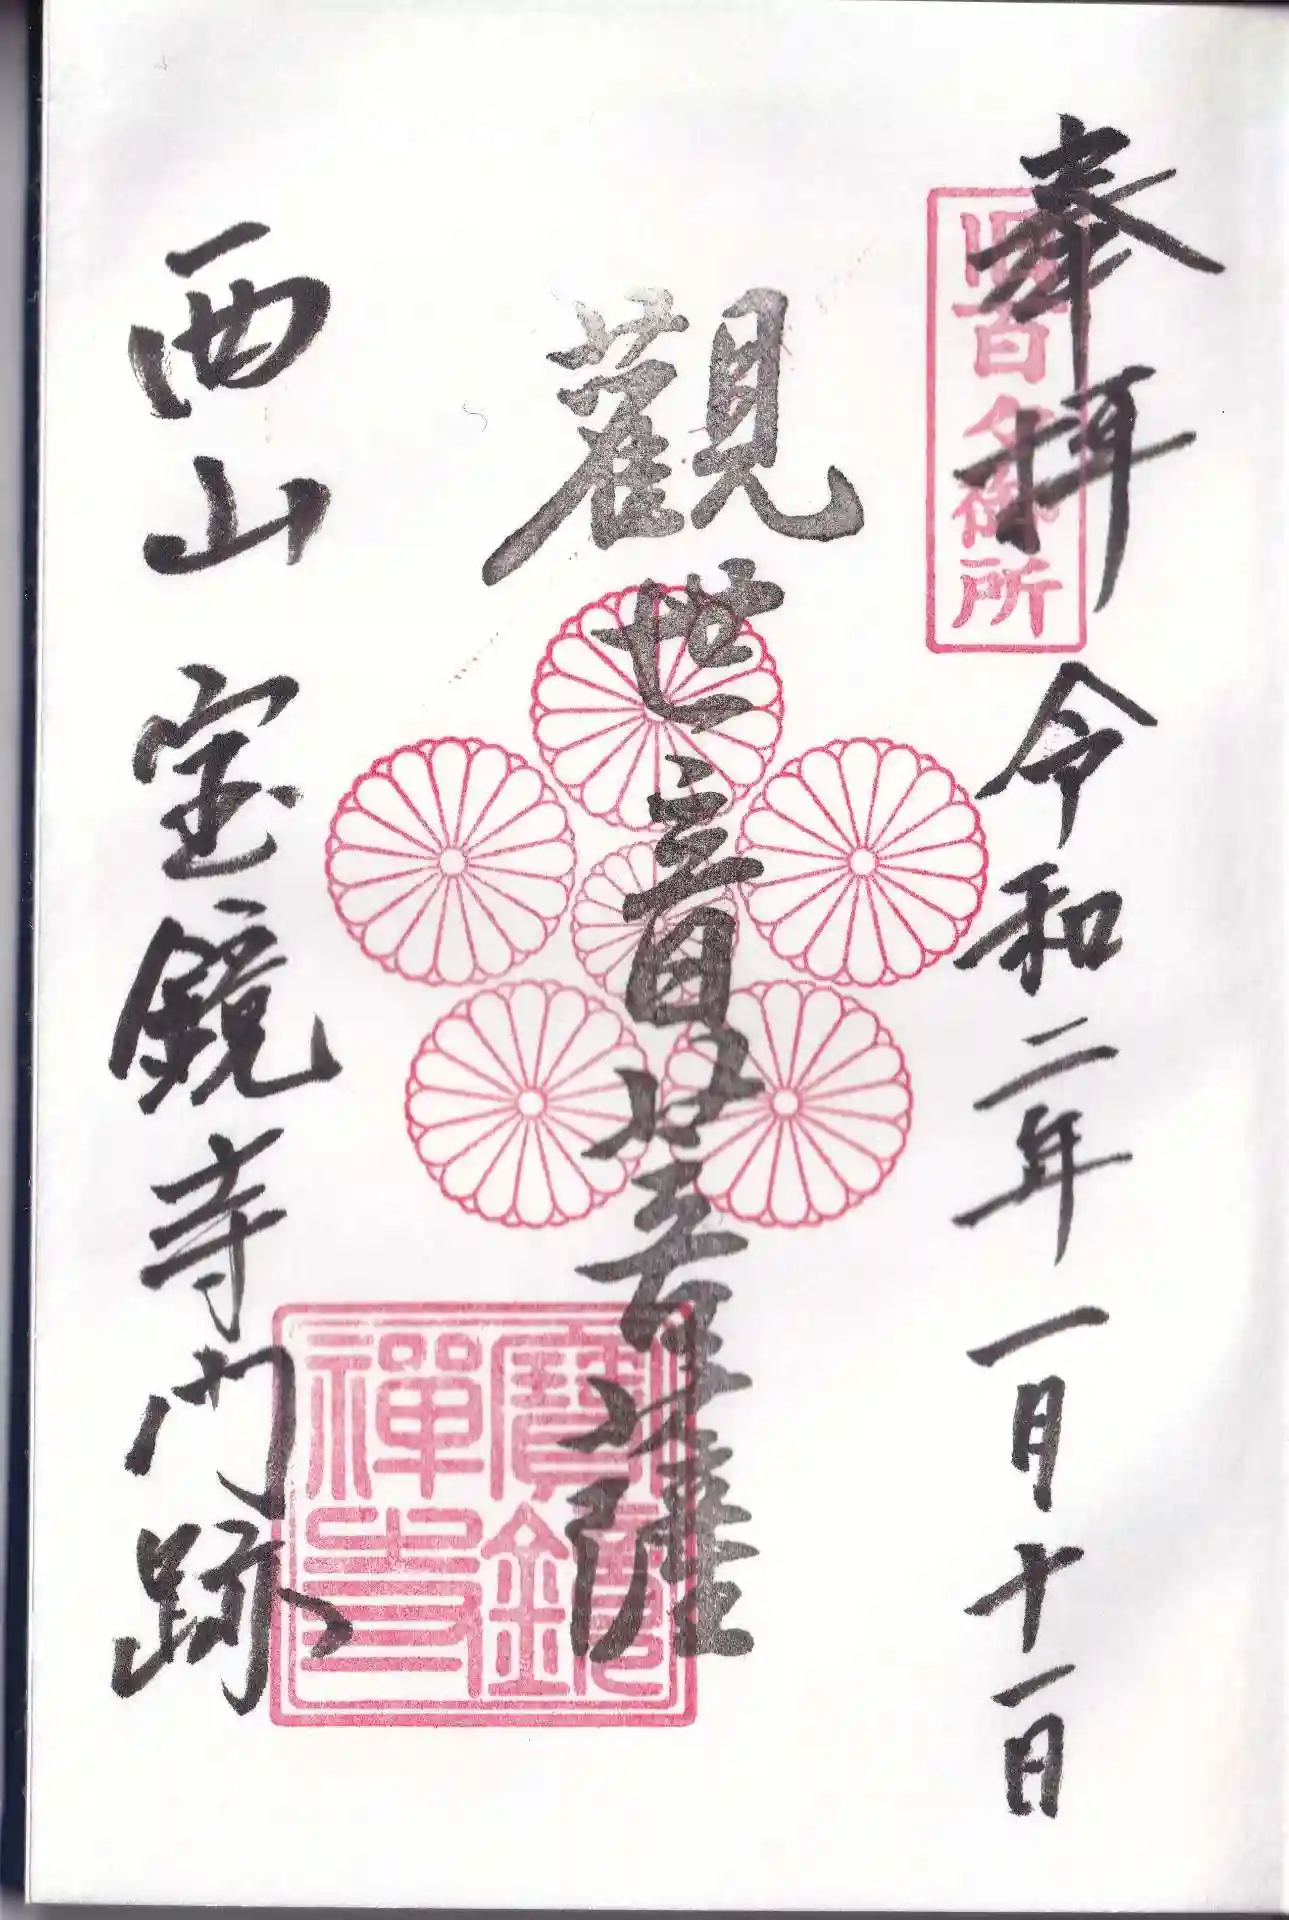 奉拝 令和二年一月十一日
旧百々御所
觀世音菩薩
寶鏡
禪寺
西山 宝鏡寺門跡